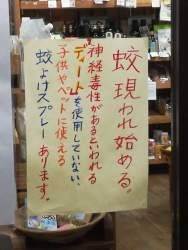 蚊現われ始める。
神経毒性があるといわれる
ディートを使用していない、
子供やペットに使える
蚊よけスプレーあります。